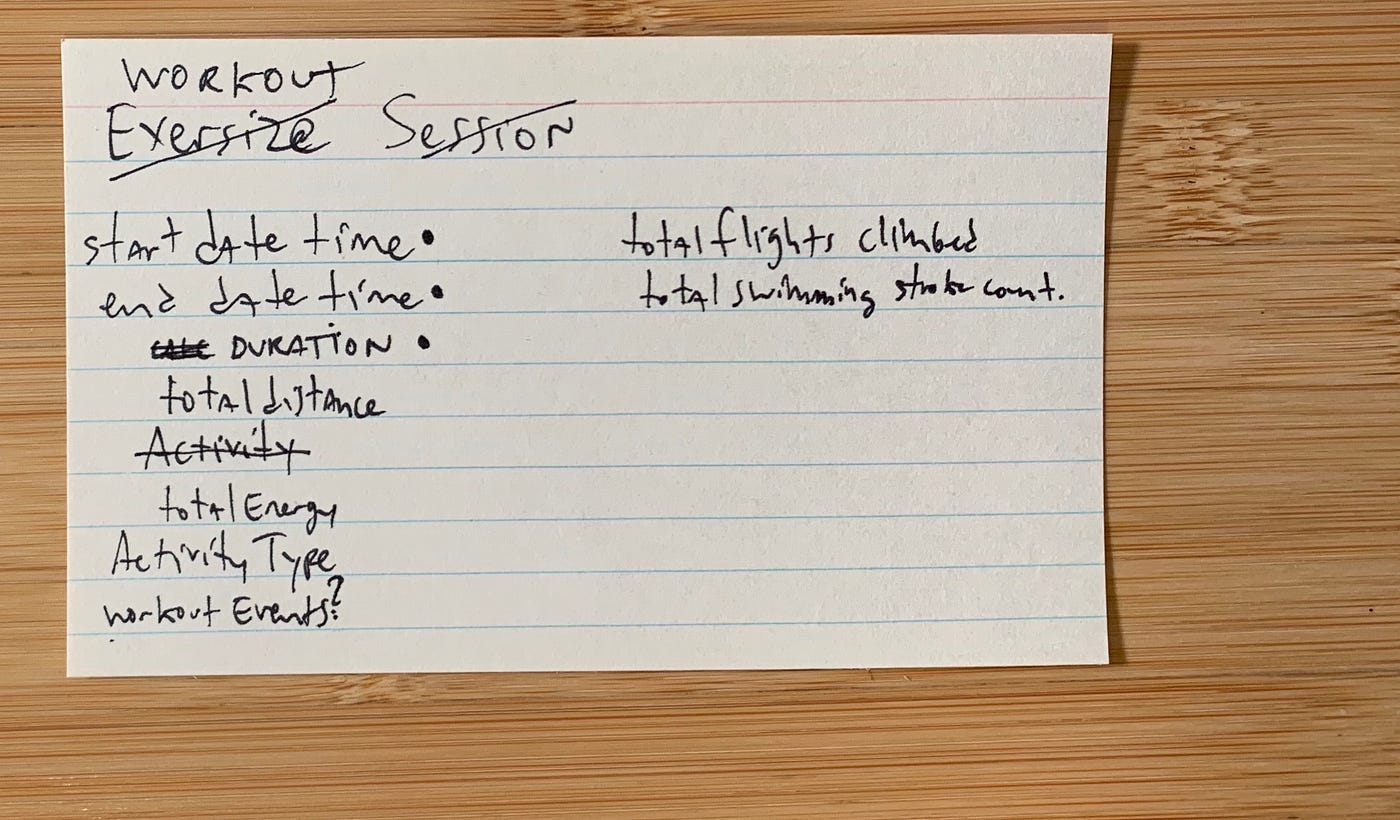 WORKOUT
Exersize Session
start date time •
end date time •
DURATION •
total distance
Activity
total Energy
Activity Type
workout Events?
total flights climbed
total swimming stroke count.